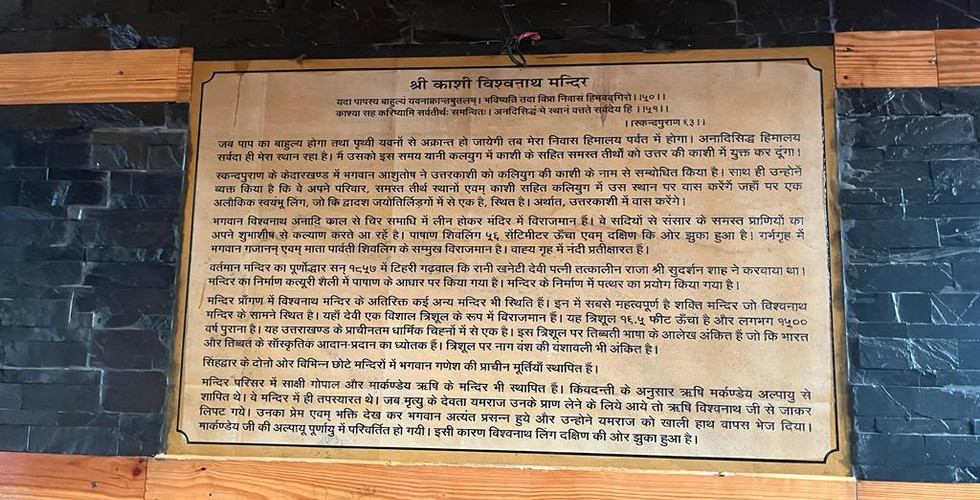 श्री काशी विश्वनाथ मन्दिर
यदा पापस्य बाहुल्यं यवनाक्रान्तभुतलम्। भविष्यति तदा विप्रा निवासं हिमवद्गिरो।।५०।।
काश्या सह करिष्यामि सर्वतीर्थः समन्वितः। अनदिसिद्धं मे स्थानं वत्तते सर्वदेय हि ।।५१।।
।।स्कन्दपुराण ६३।।
जब पाप का बाहुल्य होगा तथा पृथ्वी यवनों से अक्रान्त हो जायेगी तब मेरा निवास हिमालय पर्वत में होगा। अनादिसिद्ध हिमालय
सर्वदा ही मेरा स्थान रहा है। मैं उसको इस समय यानी कलयुग में काशी के सहित समस्त तीर्थों को उत्तर की काशी में युक्त कर दूंगा।
स्कन्दपुराण के केदारखण्ड में भगवान आशुतोष ने उत्तरकाशी को कलियुग की काशी के नाम से सम्बोधित किया है। साथ ही उन्होने
ब्यक्त किया है कि वे अपने परिवार, समस्त तीर्थ स्थानों एवम् काशी सहित कलियुग में उस स्थान पर वास करेंगें जहाँ पर एक
अलौकिक स्वयंभू लिंग, जो कि द्वादश जयोतिर्लिड़गों में से एक है, स्थित है। अर्थात, उत्तरकाशी में वास करेंगे।
भगवान विश्वनाथ अनादि काल से चिर समाधि में लीन होकर मंदिर में विराजमान हैं। वे सदियों से संसार के समस्त प्राणियों का
अपने शुभाशीष से कल्याण करते आ रहें है। पाषाण शिवलिंग ५६ सेंटिमीटर ऊँचा एवम् दक्षिण कि ओर झुका हुआ है। गर्भगृह में
भगवान गाजानन् एवम् माता पार्वती शिवलिंग के सम्मुख विराजमान है। वाह्य गृह में नंदी प्रतीक्षारत हैं।
वर्तमान मन्दिर का पूर्णोद्धार सन् १८५७ में टिहरी गढ़वाल कि रानी खनेटी देवी पत्नी तत्कालीन राजा श्री सुदर्शन शाह ने करवाया था।
मन्दिर का निर्माण कत्यूरी शैली में पाषाण के आधार पर किया गया है। मन्दिर के निर्माण में पत्थर का प्रयोग किया गया है।
मन्दिर प्राँगण में विश्वनाथ मन्दिर के अतिरिक्त कई अन्य मन्दिर भी स्थिति हैं। इन में सबसे महत्वपूर्ण है शक्ति मन्दिर जो विश्वनाथ
मन्दिर के सामने स्थित है। यहाँ देवी एक विशाल त्रिशूल के रूप में विराजमान हैं। यह त्रिशूल १६.५ फीट ऊँचा है और लगभग १५००
वर्ष पुराना है। यह उत्तराखण्ड के प्राचीनतम धार्मिक चिहनों में से एक है। इस त्रिशूल पर तिब्बती भाषा के आलेख अंकित हैं जो कि भारत
और तिब्बत के साँस्कृतिक आदान-प्रदान का ध्योतक हैं। त्रिशूल पर नाग वंश की वंशावली भी अंकित है।
सिंहद्वार के दोनो ओर विभिन्न छोटे मन्दिरों में भगवान गणेश की प्राचीन मूर्तियाँ स्थापित हैं।
मन्दिर परिसर में साक्षी गोपाल और मार्कण्डेय ऋषि के मन्दिर भी स्थापित हैं। किंवदन्ती के अनुसार ऋषि मर्कण्डेय अल्पायु से
शापित थे। वे मन्दिर में ही तपस्यारत थे। जब मृत्यु के देवता यमराज उनके प्राण लेने के लिये आये तो ऋषि विश्वनाथ जी से जाकर
लिपट गये। उनका प्रेम एवम् भक्ति देख कर भगवान अत्यंत प्रसन्न हुये और उन्होने यमराज को खाली हाथ वापस भेज दिया।
मार्कण्डेय जी की अल्पायू पूर्णायु में परिवर्तित हो गयी। इसी कारण विश्वनाथ लिग दक्षिण की ओर झुका हुआ है।